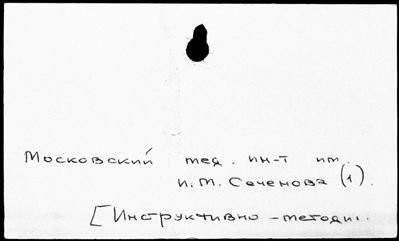 Московский мед. ин-т им.
И. М. Сеченова (1).
[Инструктивно-методич.